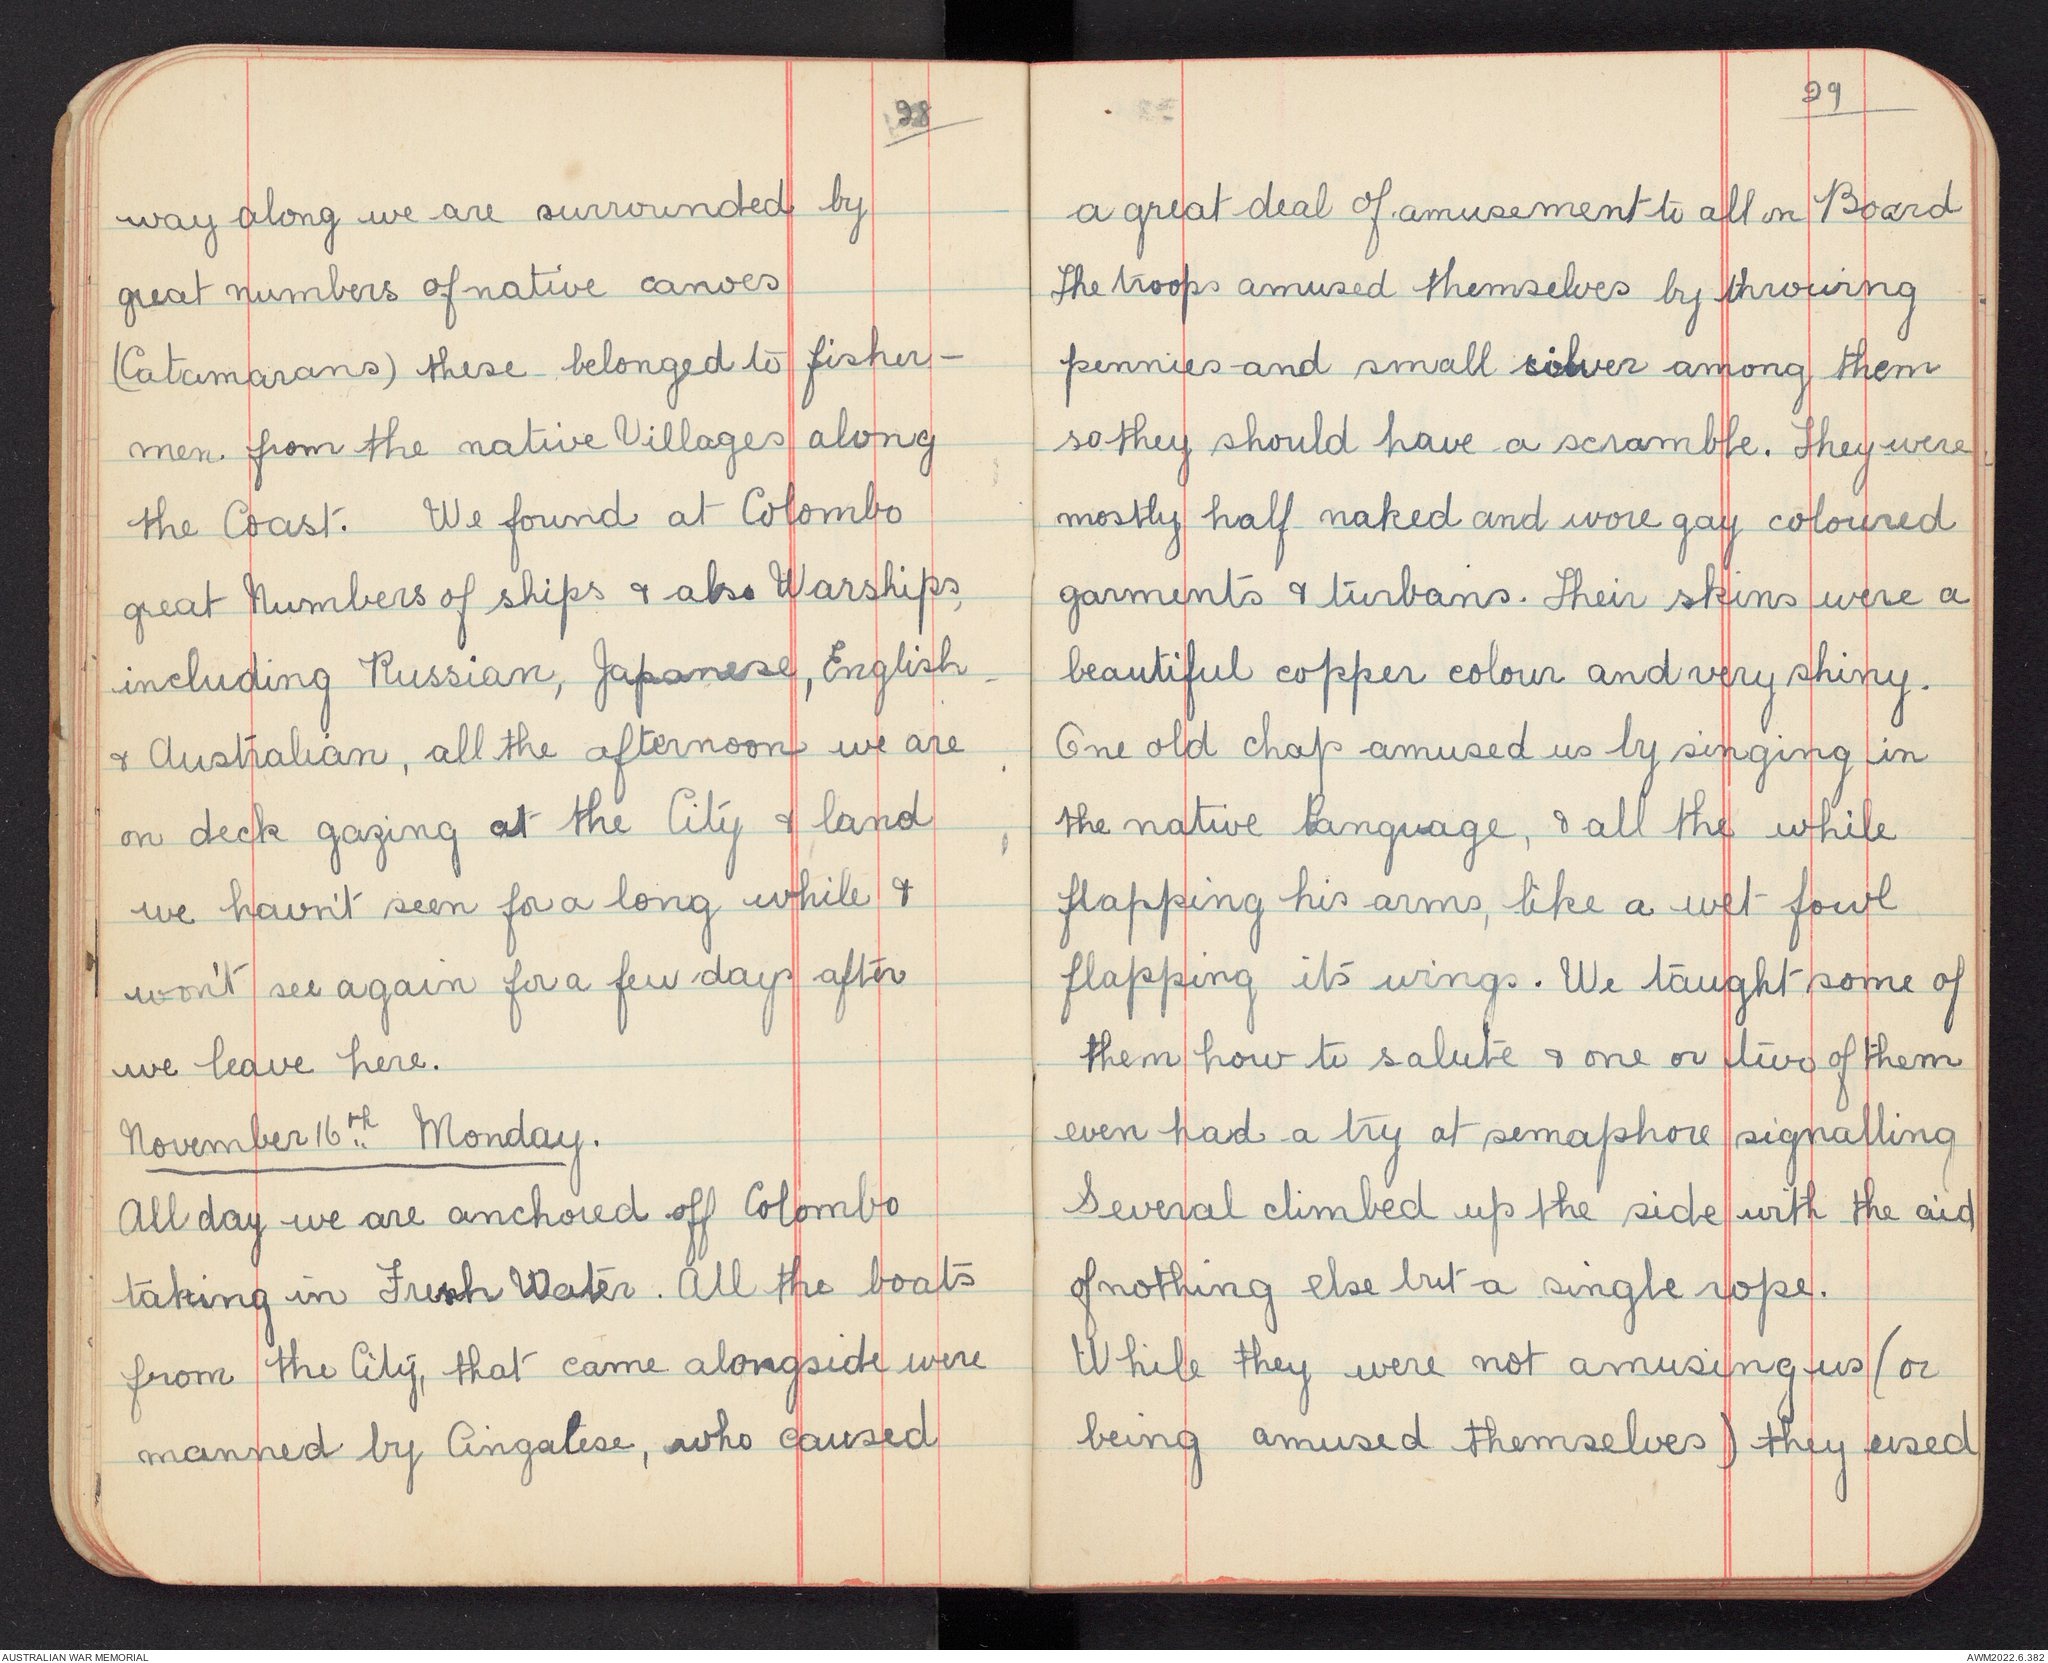 28
way along we are surrounded by
great numbers of native canoes
(Catamarans) these belonged to fisher-
men from the native Villages along
the Coast. We found at Colombo
great Numbers of ships & also Warships,
including Russian, Japanese, English
& Australian, all the afternoon we are
on deck gazing at the City & land
we havn't seen for a long while &
won't see again for a few days after
we leave here.
November 16th Monday.
All day we are anchored off Colombo
taking in Fresh Water. All the boats
from the City, that came alongside were
manned by Cingalese, who caused
29
a great deal of amusement to all on Board
The troops amused themselves by throwing
pennies and small silver among them
so they should have a scramble. They were
mostly half naked and wore gay coloured
garments & turbans. Their skins were a
beautiful copper colour and very shiny.
One old chap amused us by singing in
the native language, & all the while
flapping his arms, like a wet fowl
flapping its wings. We taught some of
them how to salute & one or two of them
even had a try at semaphore signalling
Several climbed up the side with the aid
of nothing else but a single rope.
While they were not amusing us (or
being amused themselves) they used
AUSTRALIAN WAR MEMORIAL
AWM2022.6.382